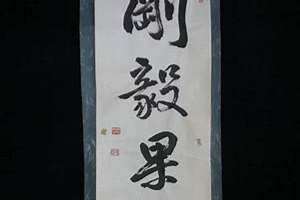 剛毅果